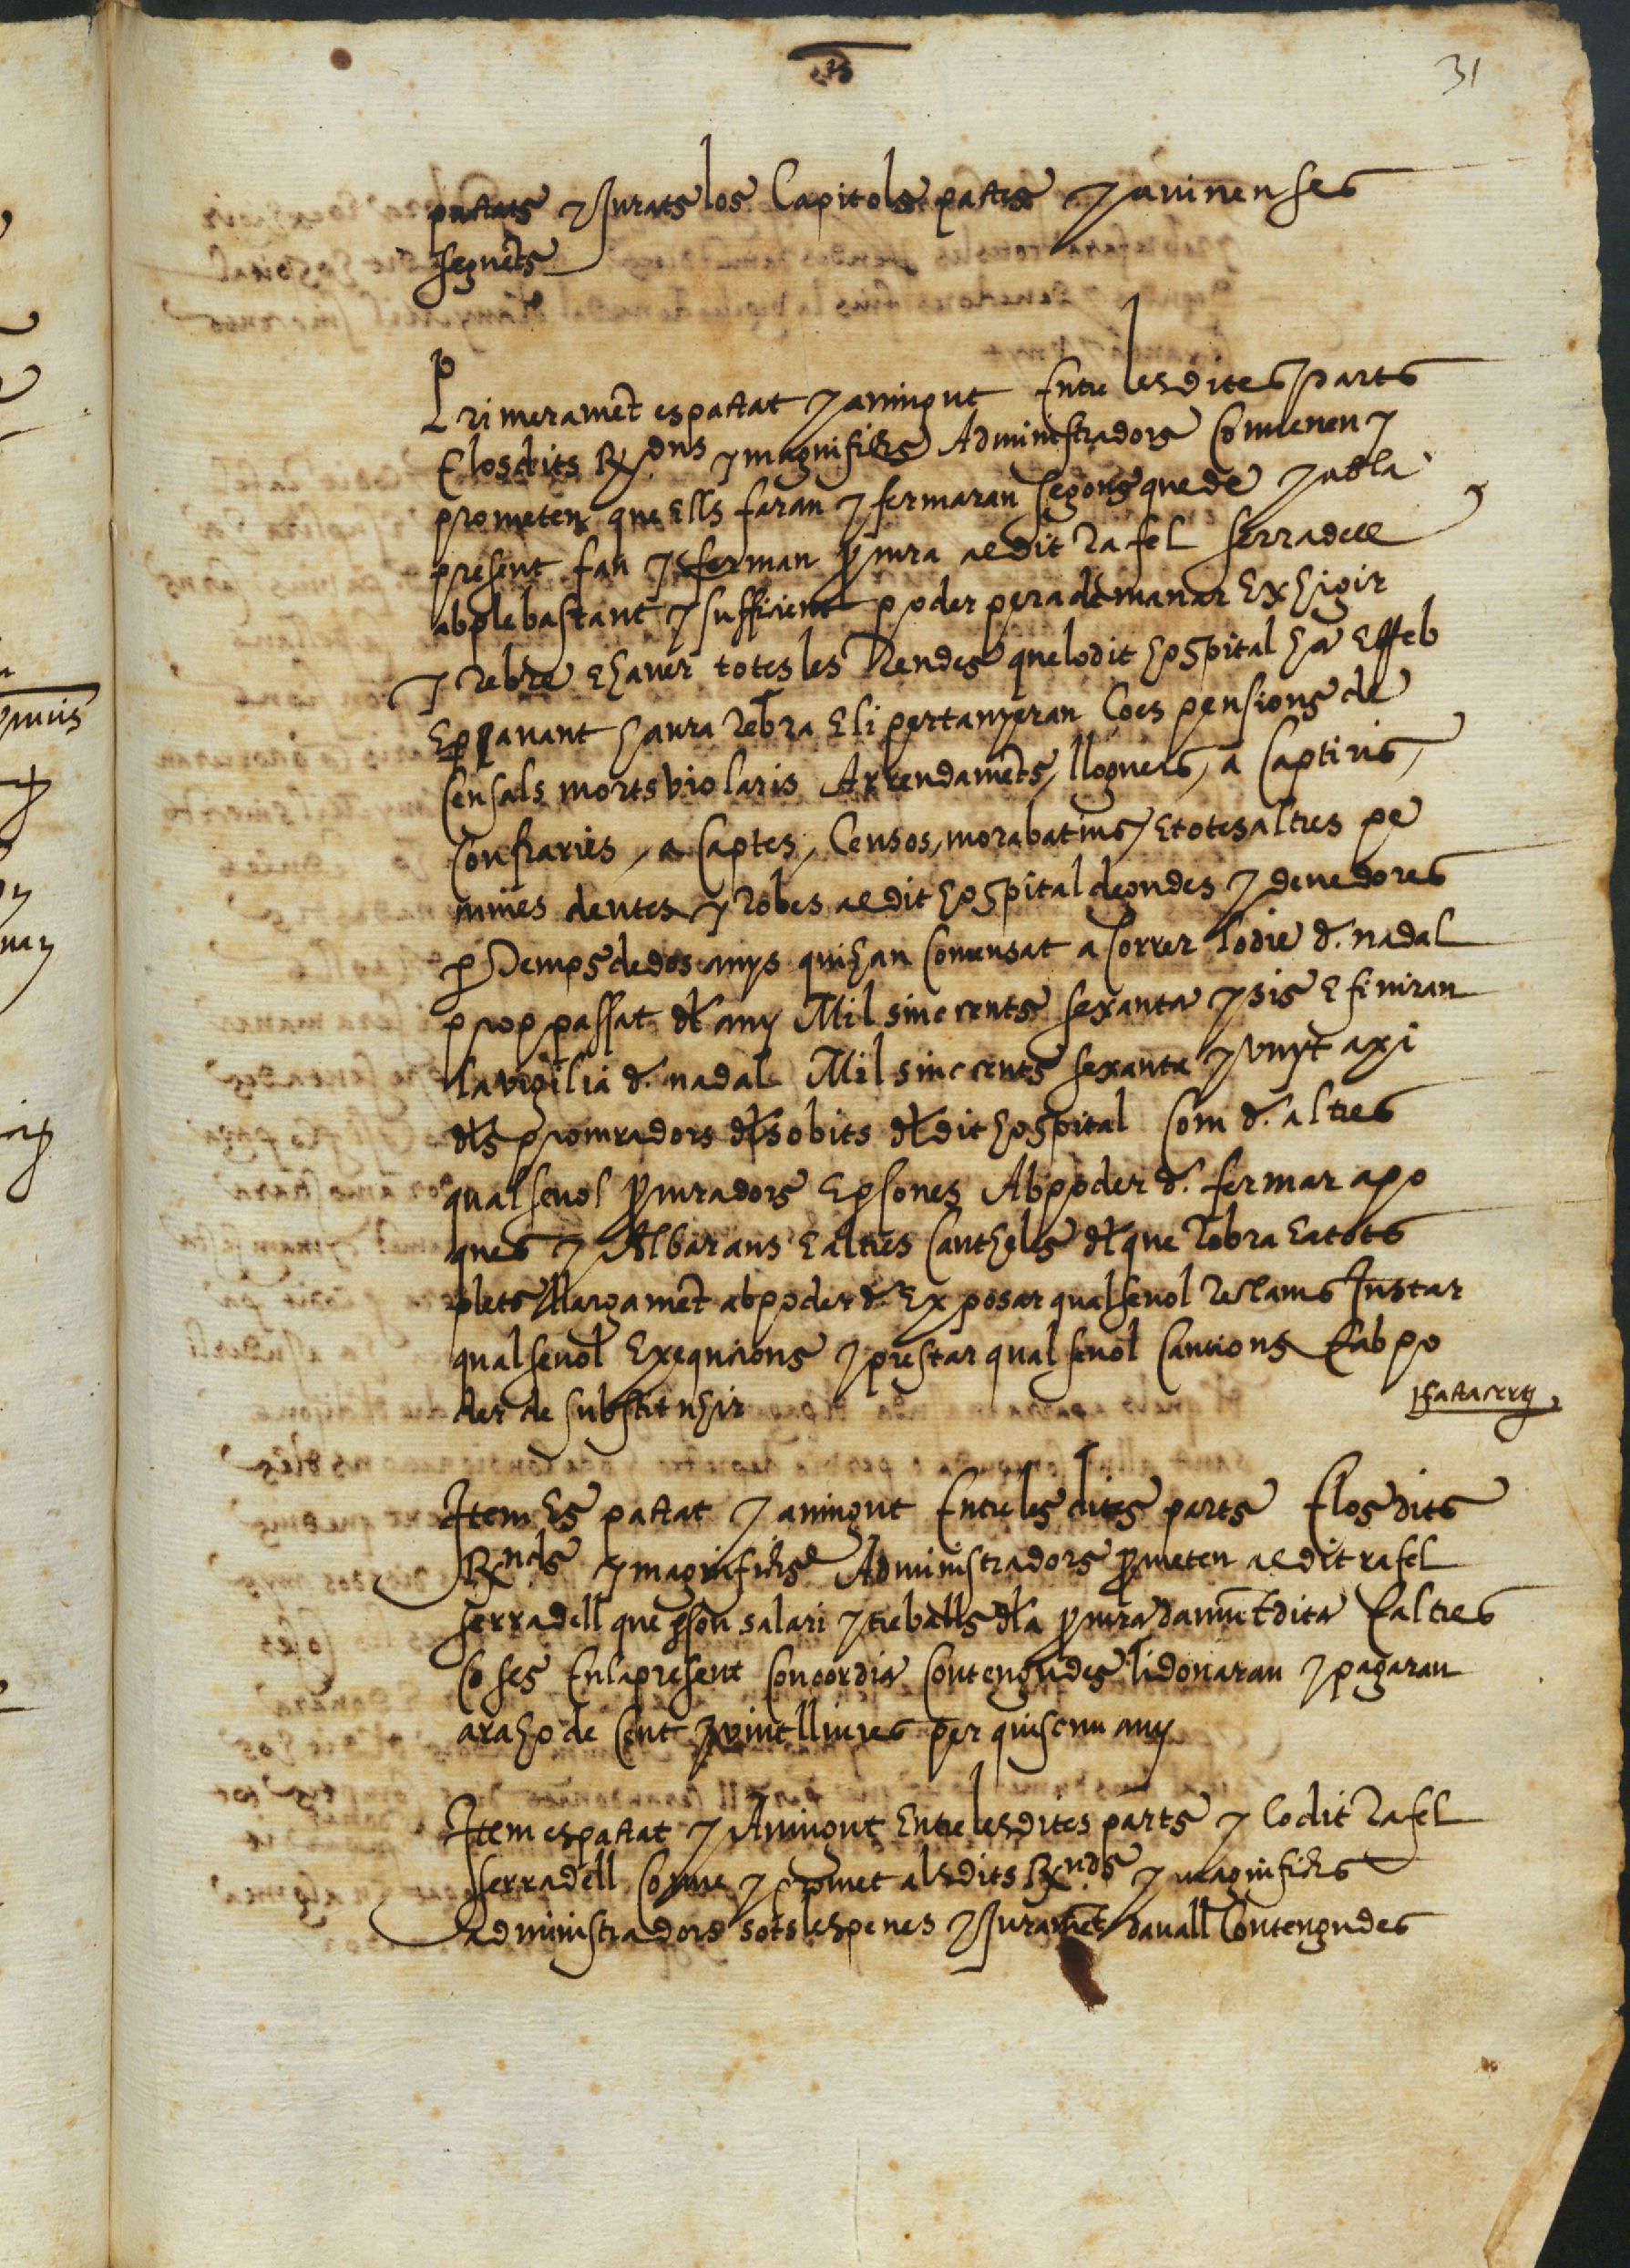 31
pactats y jurats los Capitols pactes y avinenses
seguẽts
Primeramẽt es pactat y avingut Entre les dites parts
E los dits Rx.dns y magnifichs Administradors Convenen y
prometen que Ells faran y fermaran segons que de y ab la
present fan y ferman p̃cura al dit Rafel serradell
ab ple bastant y sufficient poder pera demanar Exhigir
y Rebre E haver totes les Rendes que lo dit hospital ha E Reb
E p avant haura Rebra E li pertanyeran Coes pensions de
Censals morts violaris Arrendamẽts, lloguers, a Captiris,
Confraries, a Captes, Censos, morabatins, E totes altres pe
cunies deutes y Robes al dit hospital degudes y devedores
p Temps de dos anys qui han Comensat a Correr lo die d. nadal
prop passat dl any Mil sinccents sexanta y sis E finiran
la vigilia d. nadal Mil sinccents sexanta y vuyt axi
dls procuradors dls obits dl dit hospital Com d. altres
qualsevol p̃curadors E psones Ab poder d. fermar apo
ques y Albarans E altres Cautheles dl que Rebra E a tots
plets llargamẽt ab poder d. Exposar qualsevol Reclams Instar
qualsevol Exequcions y prestar qualsevol Cautions E ab po
der de substituhir
Item Es pactat y avingut Entre les dites parts E los dits
Rx nds y magnifichs Administradors p̃meten al dit rafel
serradell que p son salari y treballs dla p̃cura damũt dita E altres
Coses En la present Concordia Contengudes li donaran y pagaran
a raho de Cent y vint lliures per quiscun any
Item es pactat y Avingut Entre les dites parts y lo dit Rafel
serradell Cove y p̃met als dits Rx.nds y magnifichs
administradors sots les penes y juramẽt davall Contengudes